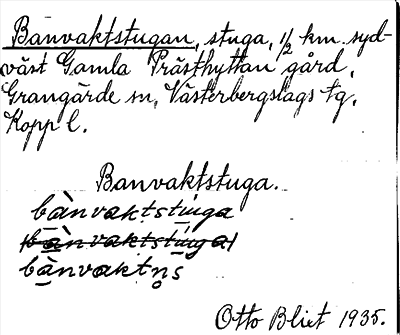 Banvaktstugan, stuga, 1/2 km. syd-
väst Gamla Prästhyttan gård,
Grangärde sn, Västerbergslags tg,
Kopp l.
Banvaktstuga.
bànvaktstuga
bànvaktn̥s
Otto Blixt 1935.